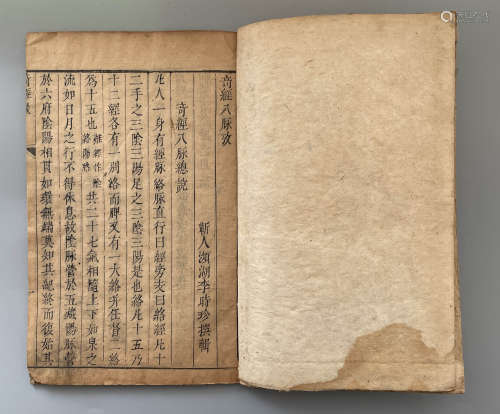 奇經八脉攷
蘄人瀕湖李時珍撰輯
奇經八脉總說
凡人一身有經脉絡脉直行曰經旁支曰絡經凡十
二手之三陰三陽足之三陰三陽是也絡凡十五乃
十二經各有一別絡而脾又有一大絡并任督二絡
為十五也難經作陰絡陽絡共二十七氣相隨上下如泉之
流如日月之行不得休息故陰脉營於五臟陽脉營
於六府陰陽相貫如環無端莫知其紀終而復始其